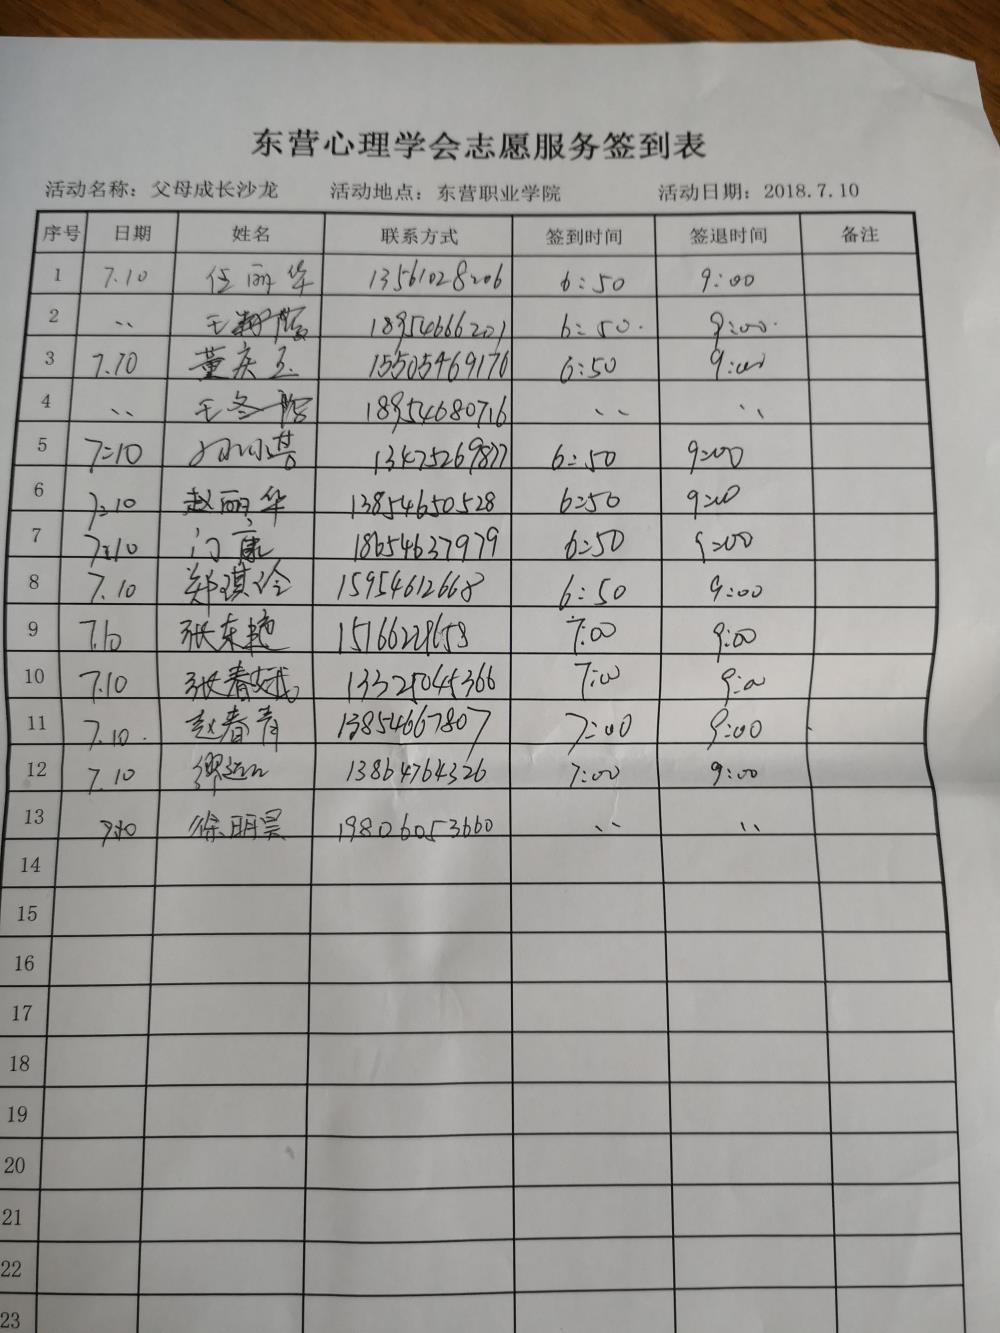 东营心理学会志愿服务签到表
活动名称：父母成长沙龙 活动地点：东营职业学院 活动日期：2018.7.10
序号 日期 姓名 联系方式 签到时间 签退时间 备注
1 7.10 任丽华 13561028206 6:50 9:00
2 、、 王 18954666201 6:50. 9:00.
3 7.10 董庆玉 15505469176 6:50 9:00
4 、、 王冬 18954680716 、、 、、
5 7:10 13475269877 6:50 9:00
6 7:10 赵丽华 13854650528 6:50 9:00
7 7:10 门康 18654637979 6:50 9:00
8 7.10 郑琪 15954612668 6:50 9:00
9 7.10 张东艳 7:00 9:00
10 7.10 张春 13325045366 7:00 9:00
11 7.10. 赵春青 13854667807 7:00 9:00
12 7.10 13864764326 7:00 9:00
13 徐明昊 19806053660 、、 、、
14
15
16
17
18
19
20
21
22
23